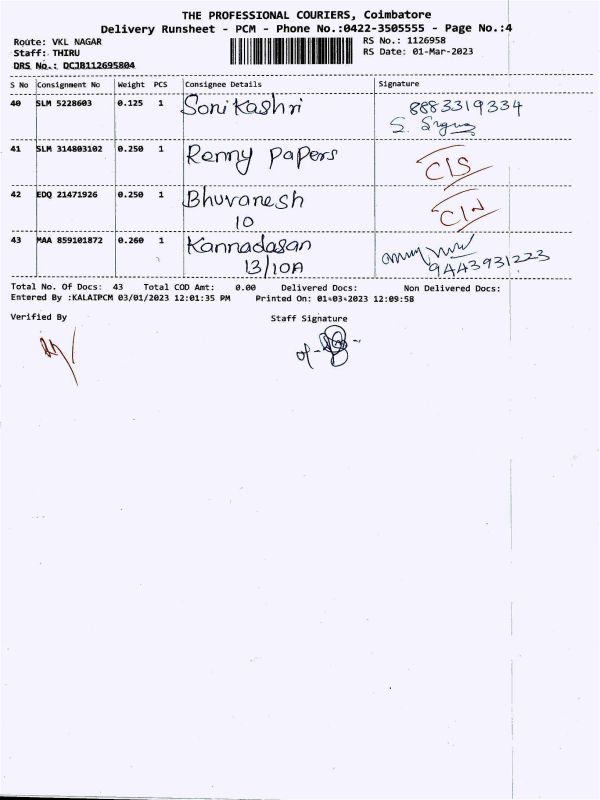 THE PROFESSIONAL COURIERS, Coimbatore
Delivery Runsheet - PCM - Phone No.:0422-3505555 - Page No.:4
Route: VKL NAGAR RS No.: 1126958
Staff: THIRU RS Date: 01-Mar-2023
DRS No.: DCJB112695804
S No Consignment No Weight PCS Consignee Details Signature
40 SLM 5228603 0.125 1 Sonikashri 8883319334
S.
41 SLM 314803102 0.250 1 Remmy Papers CIS
42 EDQ 21471926 0.250 1 Bhuvanesh CIN
10
43 MAA 859101872 0.260 1 Kannadasan
13/10A 9443931223
Total No. Of Docs: 43 Total COD Amt: 0.00 Delivered Docs: Non Delivered Docs:
Entered By :KALAIPCM 03/01/2023 12:01:35 PM Printed On: 01-03-2023 12:09:58
Verified By Staff Signature